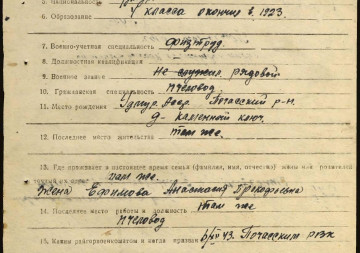 5. Национальность
6. Образование 4 класса окончил в 1923.
7. Военно-учетная специальность физтруд.
8. Должностная квалификация
9. Военное звание не служил. рядовой
10. Гражданская специальность пчеловод
11. Место рождения Удмур. Асср.
д- каменный ключ.
12. Последнее место жительства там же.
13. Где проживает в настоящее время семья (фамилия, имя, отчество) жены или родителей
там же.
жена Ефимова Анастасия Прокопьевна
14. Последнее место работы и должность там же
пчеловод
15. Каким райвоенкоматом и когда призван 43.